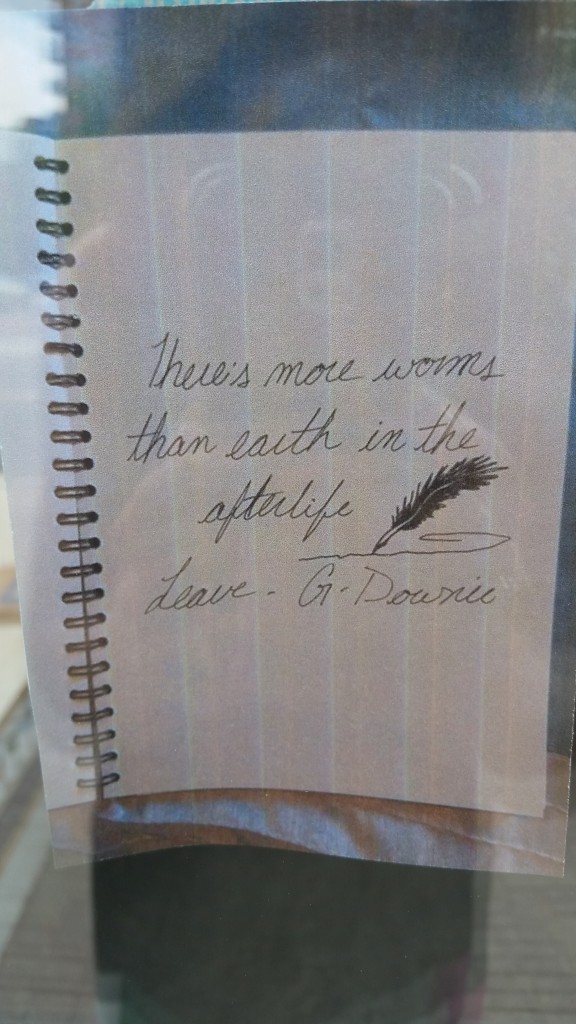 There's more worms
than earth in the
afterlife
Leave - G-Downie